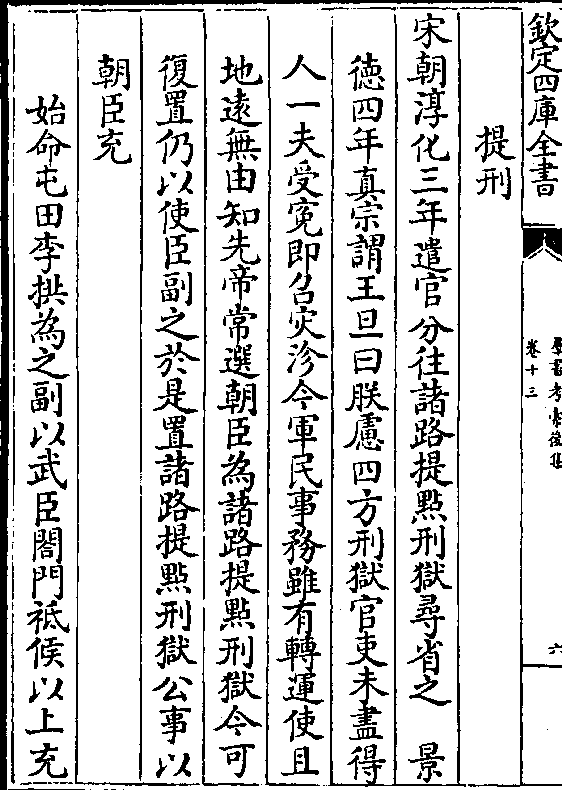 欽定四庫全書
羣書考索後集
卷十三
六
提刑
宋朝淳化三年遣官分往諸路提㸃刑獄尋省之　景
徳四年真宗謂王旦曰朕慮四方刑獄官吏未盡得
人一夫受寃即召灾沴今軍民事務雖有轉運使且
地逺無由知先帝常選朝臣為諸路提㸃刑獄今可
復置仍以使臣副之於是置諸路提㸃刑獄公事以
朝臣充
始命屯田李拱為之副以武臣閤門祗候以上充